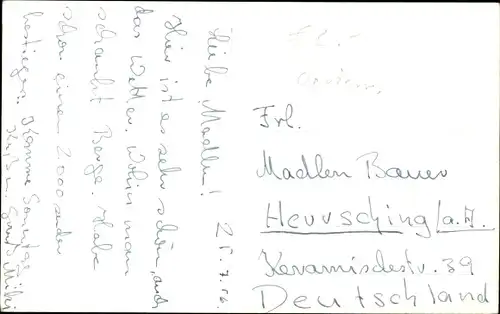 25.7.56.
Liebe Madlen!
Hier ist es sehr schön, auch
das Wetter. Wohin man
schaubt Berge. Habe
schon einen 2000ender
bestiegen. Komme Sonntag
Frl.
Madlen Bauer
Herrsching/a.A.
Keramisdestr. 39
Deutschland